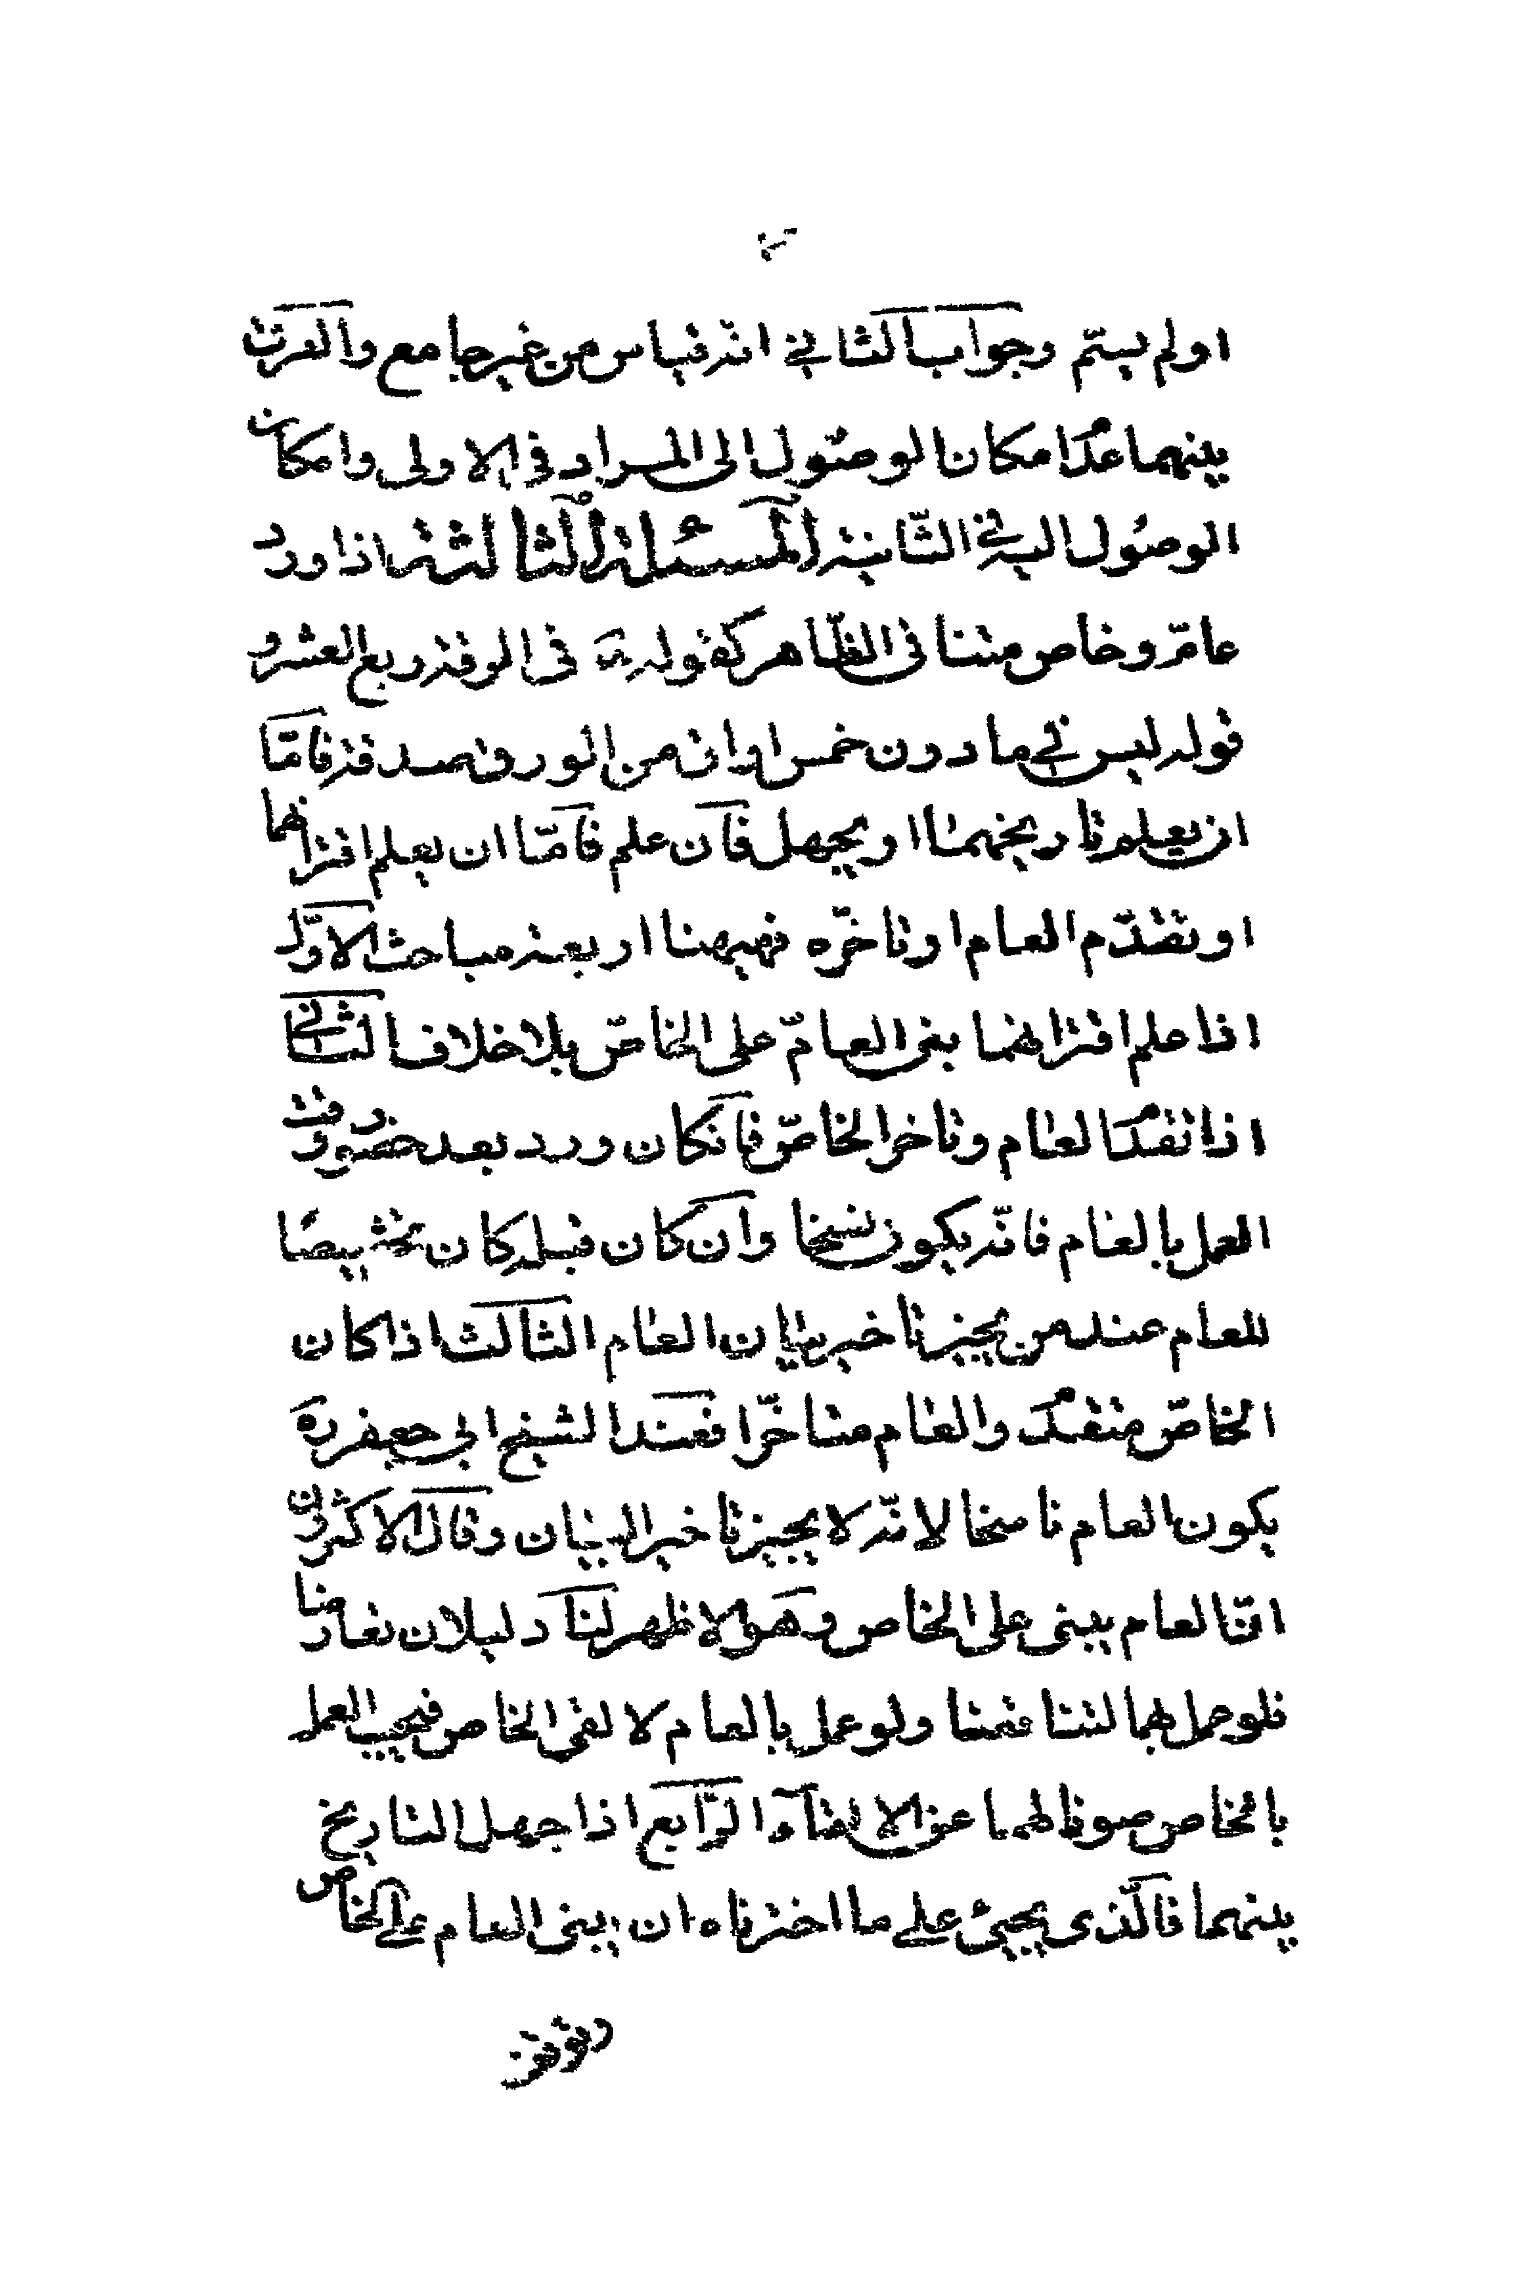 او لم يستم وجواب الثاني انه قياس من غير جامع والفرق
بينهما عدم امكان الوصول الى المراد في الاولى وامكان
الوصول اليه في الثانية المسئلة الثالثة اذا ورد
عام وخاص متنافى الظاهر كقوله في الرقة ربع العشر و
قوله ليس في ما دون خمس اواق من الورق صدقة فامّا
ان يعلم تاريخهما او يجهل فان علم فامّا ان يعلم اقترانهما
او تقدّم العام او تاخّره فهيهنا اربعة مباحث الاوّل
اذا علم اقترانهما بنى العامّ على الخاصّ بلا خلاف الثاني
اذا تقدم العام وتاخر الخاصّ فان كان ورد بعد حضور وقت
العمل بالعام فانّه يكون نسخا وان كان قبله كان تخصيصًا
للعام عند من يجيز تاخير بيان العام الثالث اذا كان
الخاصّ متقدم والعام متاخّرا فعند الشيخ ابي جعفر ره
يكون العام ناسخا لانّه لا يجيز تاخير البيان وقال الاكثرون
انّ العام يبنى على الخاص وهو الاظهر لنا دليلان تعارضا
فلو عمل بهما لتنافتا ولو عمل بالعام لالغى الخاص فيجب العمل
بالخاص صونا لهما عن الالغاء الرّابع اذا جهل التاريخ
بينهما فالّذى يجيئ على ما اخترناه ان يبنى العام على الخاص